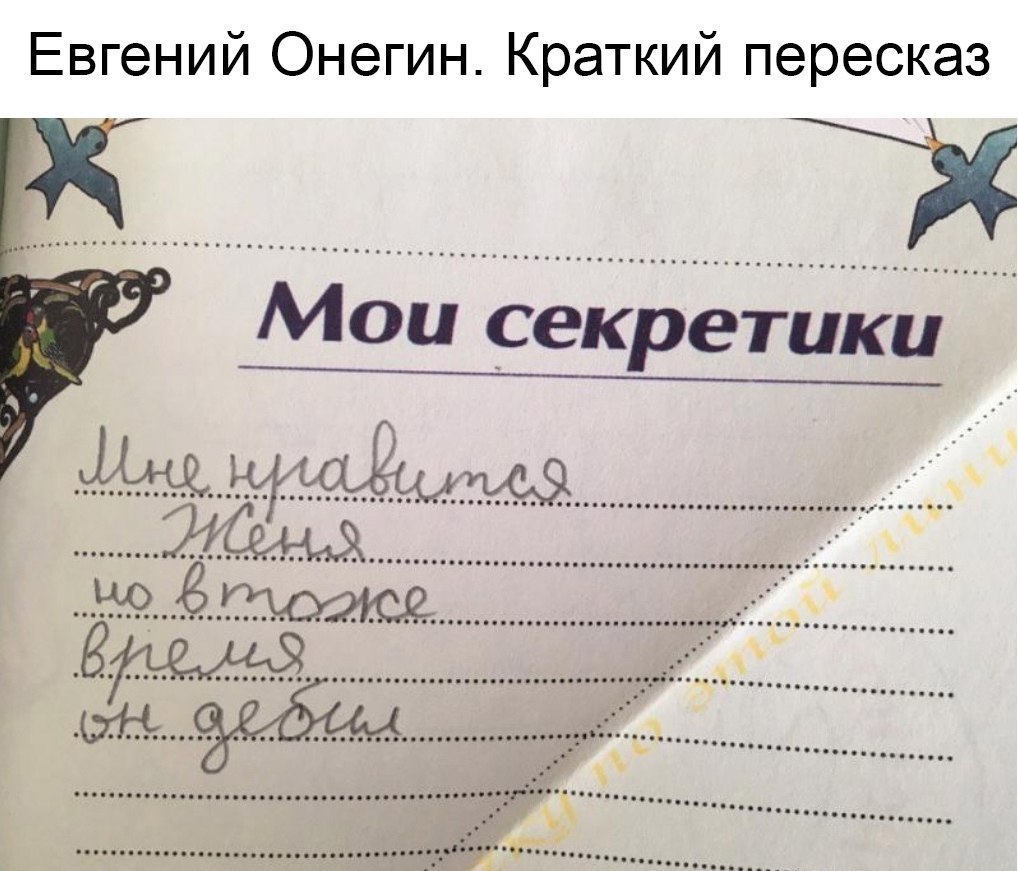 Евгений Онегин. Краткий пересказ
Мои секретики
Мне нравится
Женя
но в тоже
время
он дебил
по этой линии